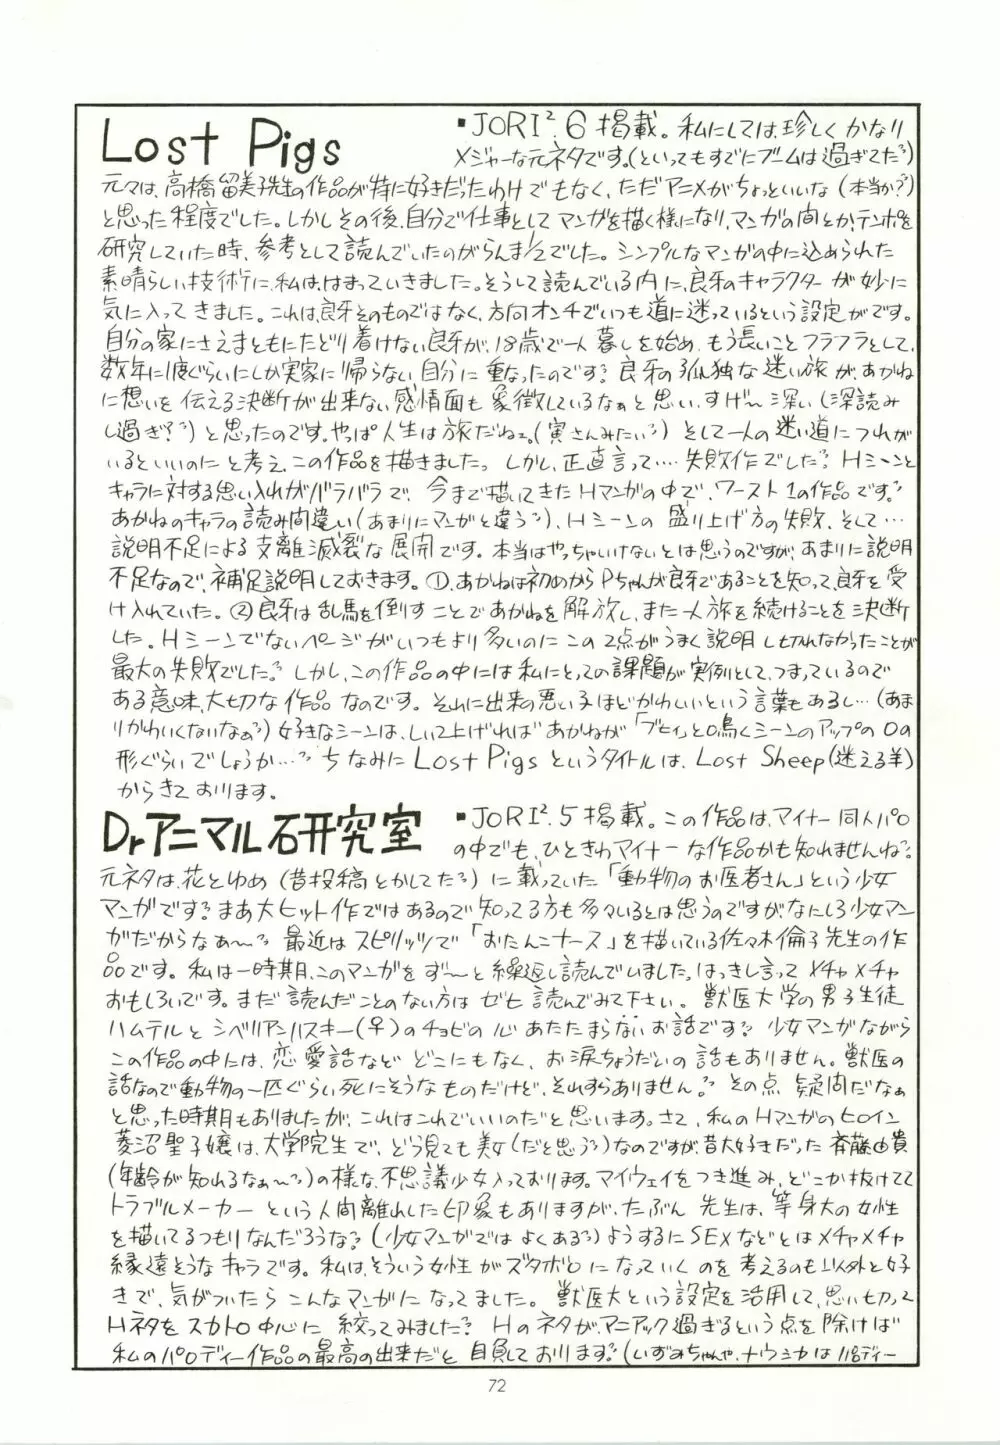 Lost Pigs
▪JORI².6 掲載。私にしては、珍しくかなり
メジャーな元ネタです。(といってもすでにブームは過ぎてた?)
元々は、高橋留美子先生の作品が特に好きだったわけでもなく、ただアニメがちょっといいな(本当か?)
と思った程度でした。しかしその後、自分で仕事としてマンガを描く様になり、マンガの間とか、テンポを
研究していた時、参考として読んでいたのがらんま1/2でした。シンプルなマンガの中に込められた
素晴らしい技術に、私は、はまっていきました。そうして読んでいる内に、良牙のキャラクターが妙に
気に入ってきました。これは、良牙そのものではなく、方向オンチでいつも道に迷っているという設定がです。
自分の家にさえまともにたどり着けない良牙が、18歳で一人暮しを始め、もう長いことフラフラとして、
数年に1度ぐらいにしか実家に帰らない自分に重なったのです? 良牙の孤独な迷い旅が、あかね
に想いを伝える決断が出来ない感情面も象徴しているなぁと思い、すげ〜深い(深読み
し過ぎ??)と思ったのです。やっぱ人生は旅だねェ。(寅さんみたい?) そして一人の迷い道につれが
いるといいのにと考え、この作品を描きました。しかし、正直言って‥‥失敗作でした? Hシーンと
キャラに対する思い入れがバラバラで、今まで描いてきたHマンガの中で、ワースト1の作品です?
あかねのキャラの読み間違い(あまりにマンガと違う?)、Hシーンの盛り上げ方の失敗、そして…
説明不足による支離滅裂な展開です。本当はやっちゃいけないとは思うのですが、あまりに説明
不足なので、補足説明しておきます。①、あかねは初めからPちゃんが良牙であることを知って、良牙を受
け入れていた。②良牙は乱馬を倒すことであかねを解放し、また一人旅を続けることを決断
した。Hシーンでないページがいつもより多いのにこの2点がうまく説明し切れなかったことが
最大の失敗でした? しかし、この作品の中には私にとっての課題が実例として、つまっているので
ある意味、大切な作品なのです。それに出来の悪い子ほどかわいいという言葉もあるし…(あま
りかわいくないなぁ?)好きなシーンは、しいて上げればあかねが「ブヒィ」と鳴くシーンのアップの口の
形ぐらいでしょうか…? ちなみにLost Pigsというタイトルは、Lost Sheep(迷える羊)
からきております。
Drアニマル研究室
▪JORI².5 掲載。この作品は、マイナー同人パロ
の中でも、ひときわマイナーな作品かも知れませんね?
元ネタは、花とゆめ(昔投稿とかしてた?)に載っていた「動物のお医者さん」という少女
マンガです? まあ大ヒット作ではあるので知ってる方も多々いるとは思うのですが、なにしろ少女マン
ガだからなぁ〜? 最近はスピリッツで「おたんこナース」を描いている佐々木倫子先生の作
品です。私は一時期、このマンガをず〜と繰返し読んでいました。はっきし言ってメチャメチャ
おもしろいです。まだ読んだことのない方はゼヒ読んでみて下さい。獣医大学の男子生徒
ハムテルとシベリアンハスキー(♀)のチョビの心あたたまらないお話です? 少女マンガながら
この作品の中には、恋愛話などどこにもなく、お涙ちょうだいの話もありません。獣医の
話なので動物の一匹ぐらい死にそうなものだけど、それすらありません? その点疑問だなぁ
と思った時期もありましたが、これはこれでいいのだと思います。さて、私のHマンガのヒロイン
菱沼聖子嬢は、大学院生で、どう見ても美女(だと思う?)なのですが、昔大好きだった斉藤由貴
(年齢が知れるなぁ〜?)の様な、不思議少女入っております。マイウェイをつき進み、どこか抜けてて
トラブルメーカーという人間離れした印象もありますが、たぶん先生は、等身大の女性
を描いてるつもりなんだろうな? (少女マンガではよくある?)ようするにSEXなどとはメチャメチャ
縁遠そうなキャラです。私は、そういう女性がズタボロになっていくのを考えるのも以外と好
きで、気がついたらこんなマンガになってました。獣医大という設定を活用して、思い切って
Hネタをスカトロ中心に絞ってみました? Hのネタが、マニアック過ぎるという点を除けば
私のパロディー作品の最高の出来だと自負しております? (いずみちゃんや、ナウシカはパロディー
72